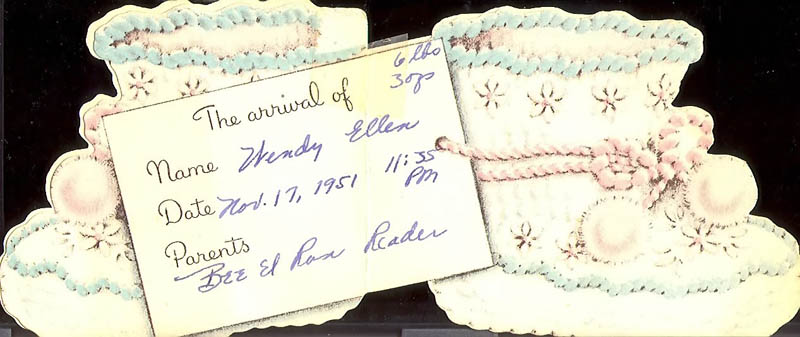 6 lbs
3 ozs
The arrival of
Name Wendy Ellen
Date Nov. 17, 1951 11:55
PM
Parents
Bee & Ron Reader